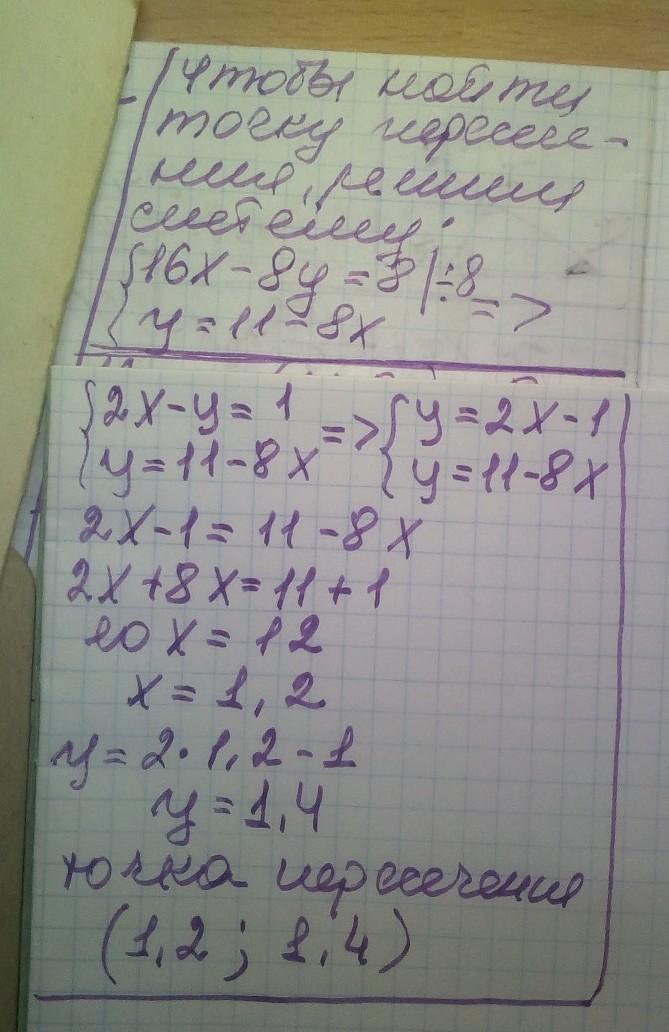 Чтобы найти
точку пересече-
ния, решим
систему:
{16x - 8y = 8 | ÷8
{y = 11 - 8x =>
{2x - y = 1
{y = 11 - 8x => {y = 2x - 1
{y = 11 - 8x
2x - 1 = 11 - 8x
2x + 8x = 11 + 1
10x = 12
x = 1,2
y = 2·1,2 - 1
y = 1,4
точка пересечения
(1,2 ; 1,4)